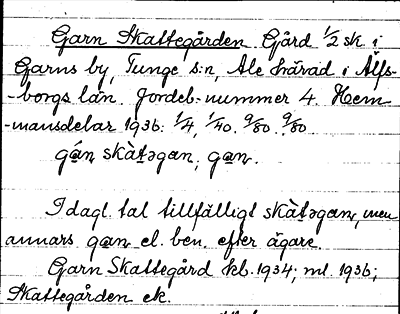 Garn Skattegården Gård 1/2 sk i
Garns by, Tunge s:n, Ale härad i Älfs-
-borgs län. Jordeb:-nummer 4. Hem
-mansdelar 1936: 1/4, 1/40. 9/80. 9/80
gạ́n skàt̠əgan; gạn.
I dagl. tal tillfälligt skàt̠əgan, men
annars gạn el. ben. efter ägare.
Garn Skattegård kb. 1934; ml. 1936;
Skattegården ek.